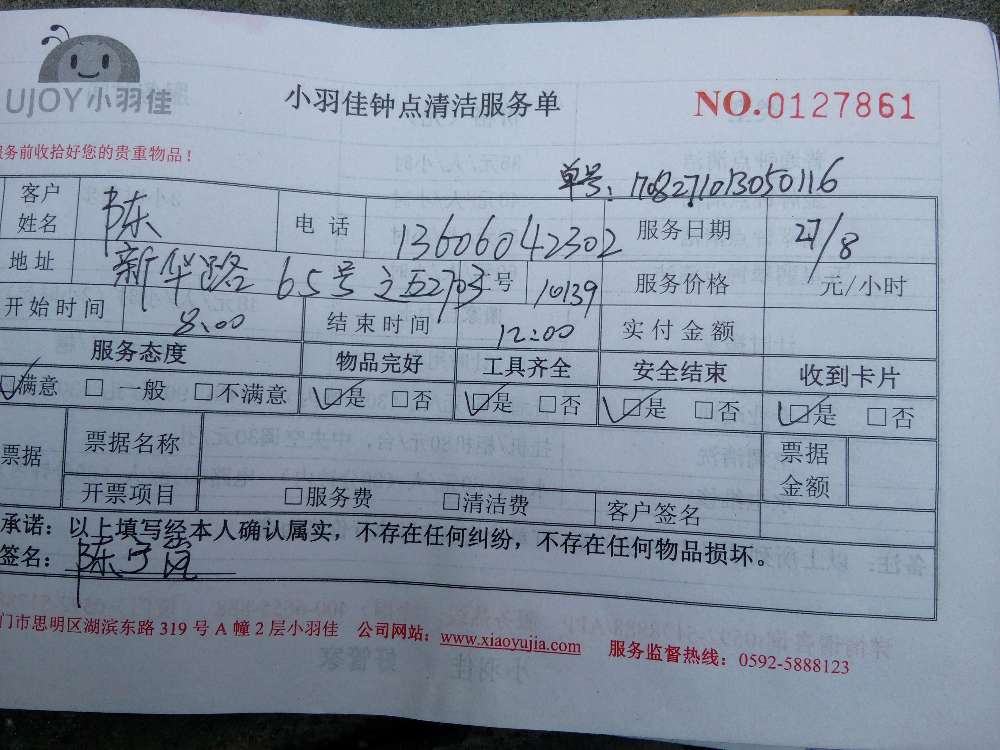 UJOY小羽佳
小羽佳钟点清洁服务单
NO.0127861
服务前收拾好您的贵重物品！
单号：1708271013050116
客户姓名 陈 电话 13606042302 服务日期 27/8
地址 新华路65号之五2703号 10139 服务价格 元/小时
开始时间 8:00 结束时间 12:00 实付金额
服务态度 物品完好 工具齐全 安全结束 收到卡片
☑满意 □一般 □不满意 ☑是 □否 ☑是 □否 ☑是 □否 ☑是 □否
票据 票据名称 票据金额
开票项目 □服务费 □清洁费 客户签名
承诺：以上填写经本人确认属实，不存在任何纠纷，不存在任何物品损坏。
签名：陈
门市思明区湖滨东路319号A幢2层小羽佳 公司网站：www.xiaoyujia.com 服务监督热线：0592-5888123